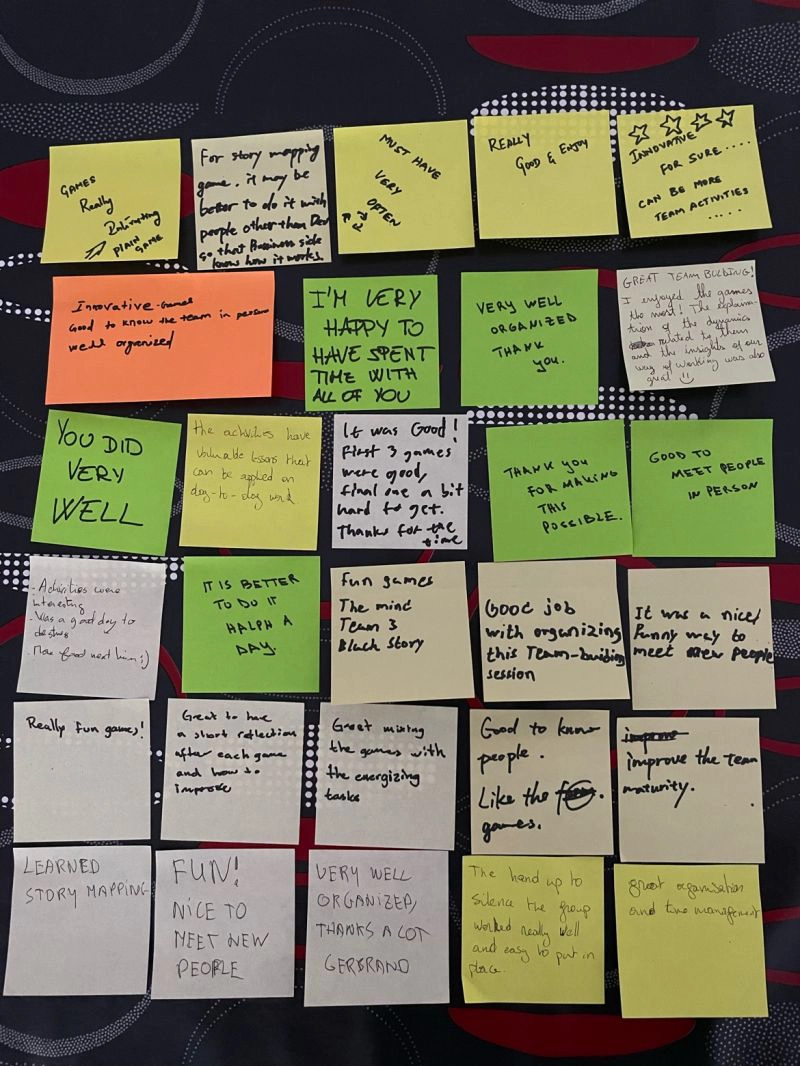 GAMES
Really
PLAIN
GAME
For story mapping
game, it may be
better to do it with
people other then Dev
so that Bussiness side
know how it works.
MUST HAVE
VERY
OFTEN
REALLY
GOOD & ENJOY
INNOVATIVE
FOR SURE .....
CAN BE MORE
TEAM ACTIVITIES
.....
Innovative Games
Good to know the team in person
well organized
I'M VERY
HAPPY TO
HAVE SPENT
TIME WITH
ALL OF YOU
VERY WELL
ORGANIZED
THANK
YOU.
GREAT TEAM BUILDING!
I enjoyed the games
the most! The explana-
tion of the dynamics
related to them
and the insights of our
way of working was also
great
YOU DID
VERY
WELL
the activities have
valuable lessons that
can be applied on
day-to-day work.
It was Good!
First 3 games
were good,
final one a bit
hard to get.
Thanks for the
time
THANK YOU
FOR MAKING
THIS
POSSIBLE.
GOOD TO
MEET PEOPLE
IN PERSON
- Activities were
interesting
- Was a good day to
- More food next time :)
IT IS BETTER
TO DO IT
HALPH A
DAY.
Fun games
The mind
Team 3
Black Story
Good job
with organizing
this Team-building
session
It was a nice/
funny way to
meet new people
Really fun games!
Great to have
a short reflection
after each game
and how to
improve
Great mixing
the games with
the energizing
tasks
Good to know
people.
Like the
games.
improve the Team
maturity.
LEARNED
STORY MAPPING
FUN!
NICE TO
MEET NEW
PEOPLE
VERY WELL
ORGANIZED,
THANKS A LOT
GERBRAND
The hand up to
silence the group
worked really well
and easy to put in
place.
great organisation
and time management